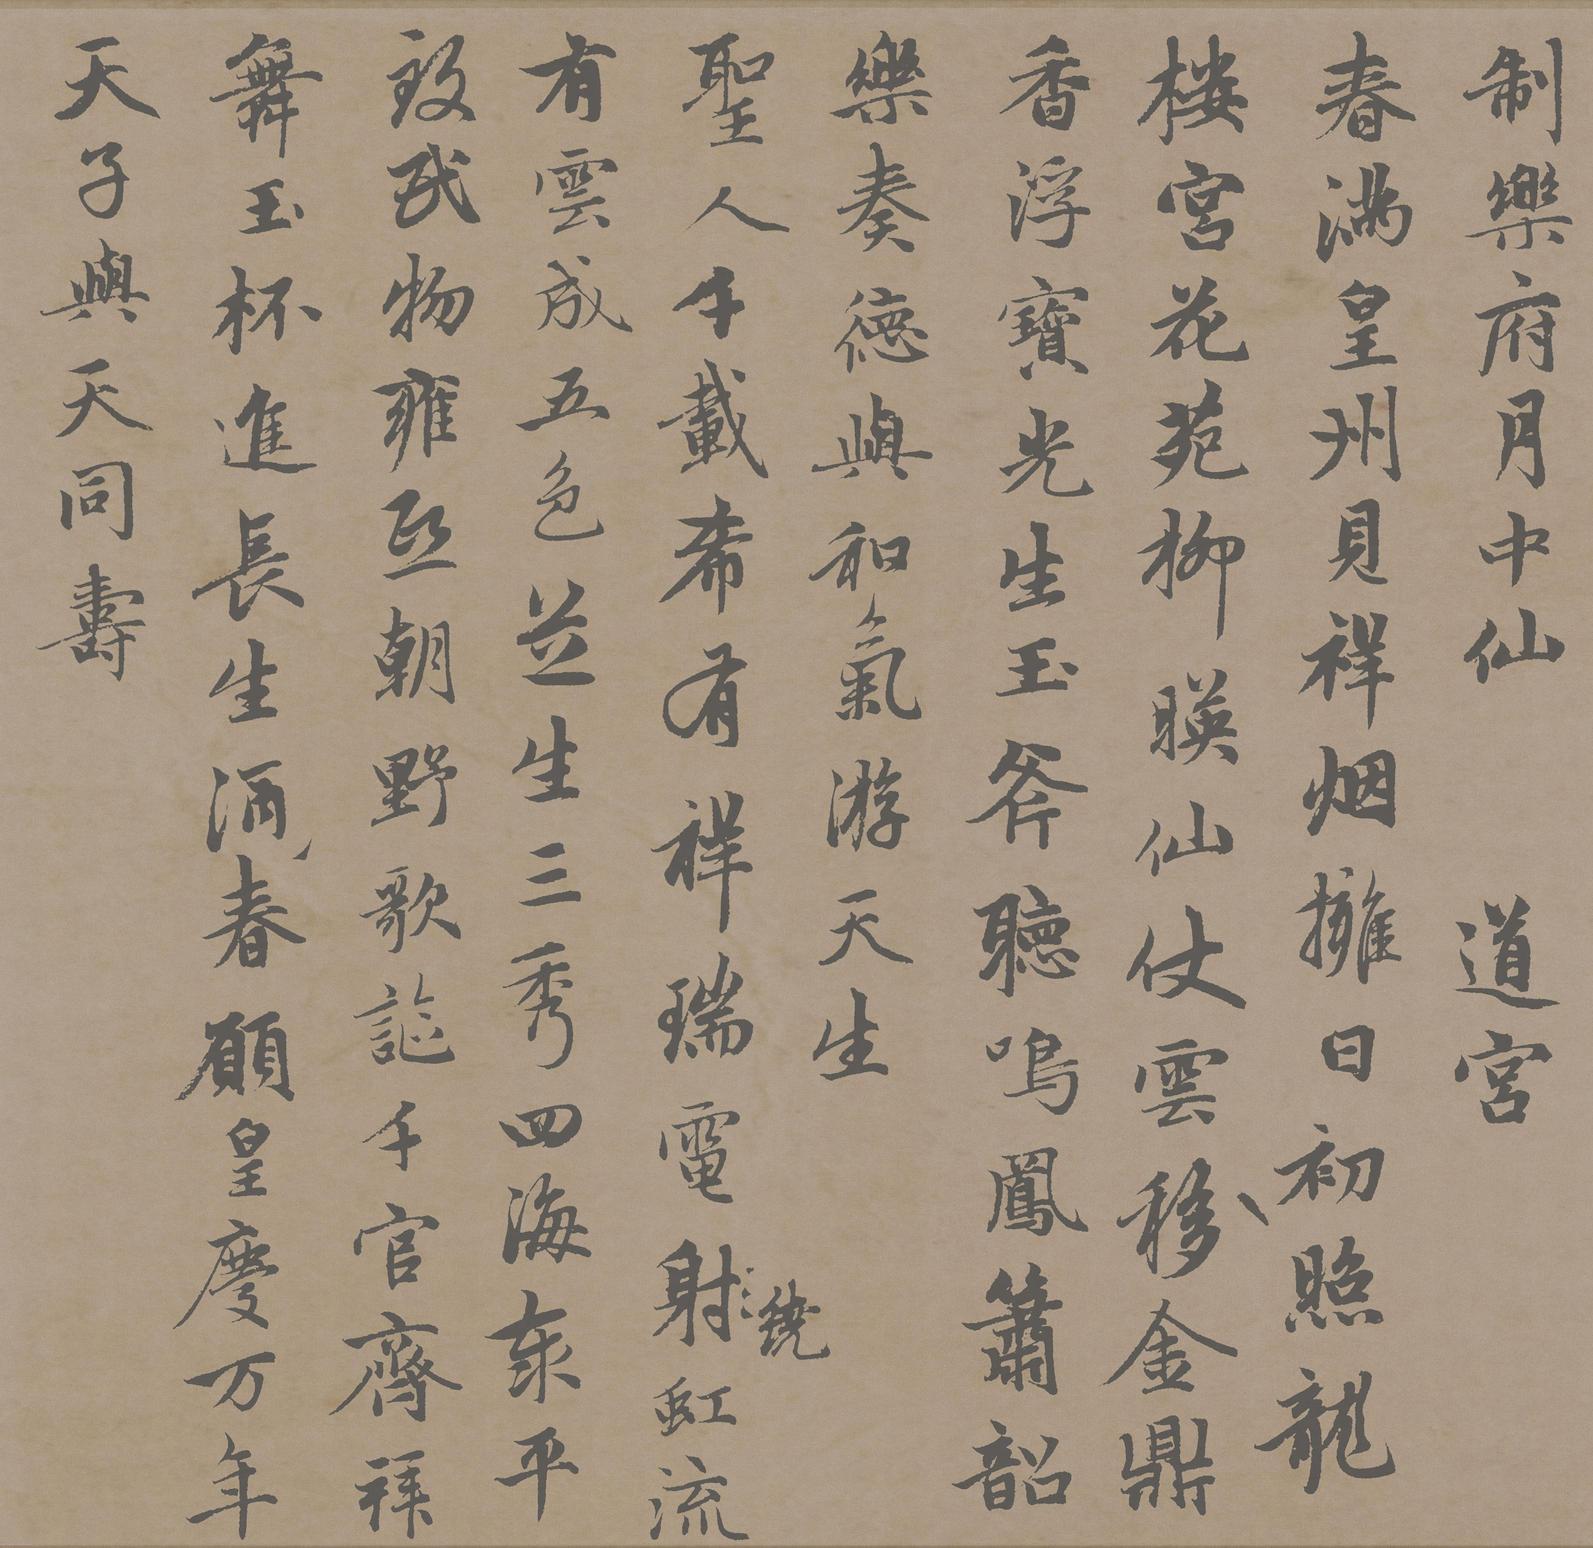 制樂府月中仙　道宮
春滿皇州見祥烟擁日初照龍
楼宮花苑柳暎仙仗雲移金鼎
香浮寶光生玉斧聽鳴鳳簫韶
樂奏德與和氣游天生
聖人千載希有祥瑞電射繞虹流
有雲成五色並生三秀四海泰平
致民物雍熙朝野歌謡千官齊拜
舞玉杯進長生酒春願皇慶万年
天子與天同壽